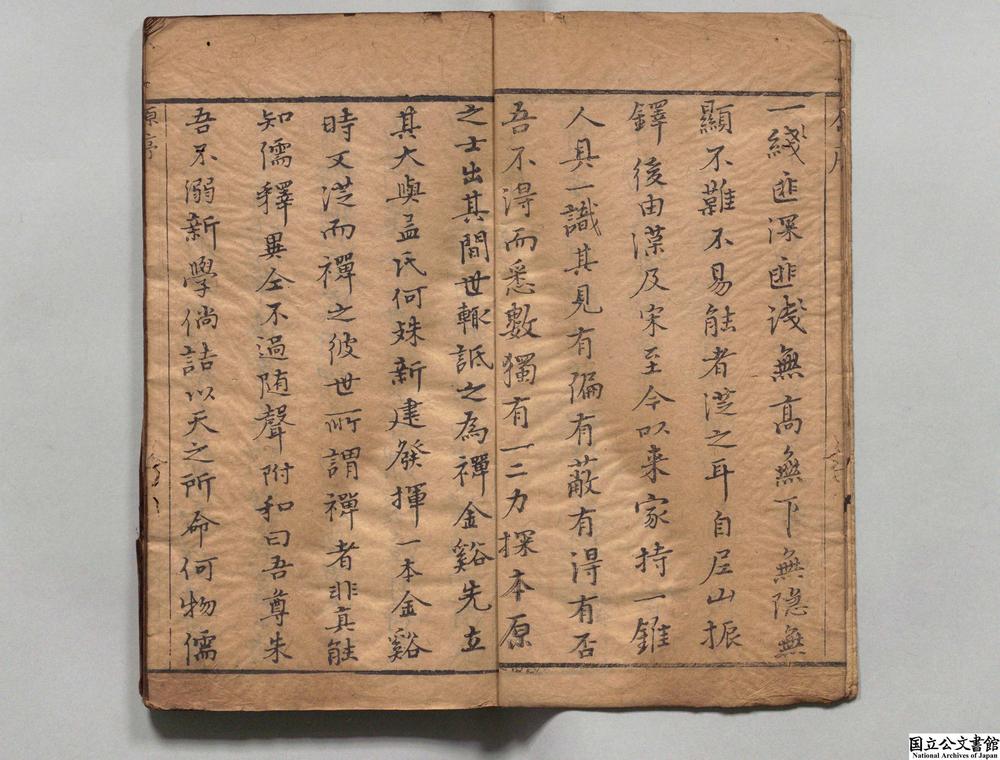 一綫匪深匪淺無高無下無隐無
顯不難不易能者從之耳自尼山振
鐸後由漢及宋至今以来家持一錐
人具一識其見有偏有蔽有淂有否
吾不淂而悉數獨有一二力探本原
之士出其間世輙詆之為禪金谿先立
其大與孟氏何殊新建發揮一本金谿
時又從而禪之彼世所謂禪者非真能
知儒釋異仝不過随聲附和曰吾尊朱
吾不溺新學倘詰以天之所命何物儒
原序
国立公文書館
National Archives of Japan